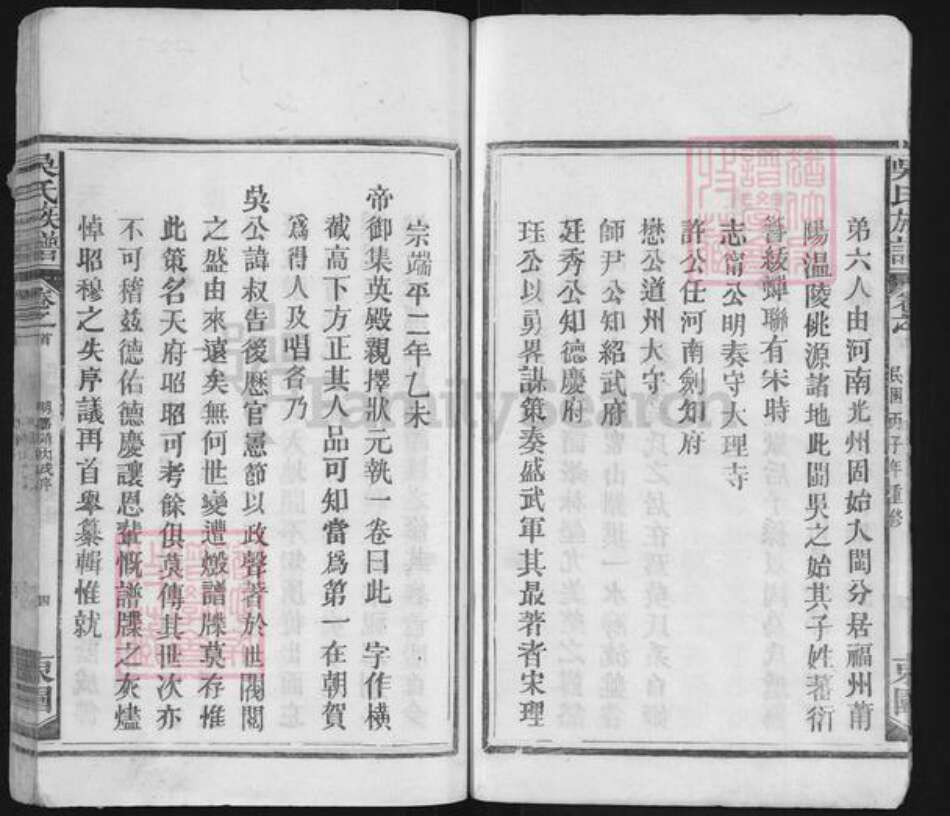 吳氏族譜
民國丙子年重修
東園
弟六人由河南光州固始入閩分居福州莆
陽溫陵桃源諸地此閩吳之始其子姓蕃衍
簪紱蟬聯有宋時
志甯公明奏守大理寺
許公任河南劍知府
懋公道州大守
師尹公知紹武府
廷秀公知德慶府
珏公以勇畧謀策奏盛武軍其最著者宋理
宗端平二年乙未
帝御集英殿親擇狀元執一卷曰此 字作橫
截高下方正其人品可知當爲第一在朝賀
爲得人及唱名乃
吳公諱叔告後歷官憲節以政聲著於世閥閱
之盛由來遠矣無何世變遭燬譜牒莫存惟
此策名天府昭昭可考餘俱莫傳其世次亦
不可稽茲德佑德慶讓恩輩慨譜牒之灰燼
悼昭穆之失序議再首舉纂輯惟就
吳氏族譜
卷之首
四
東園
FamilySearch